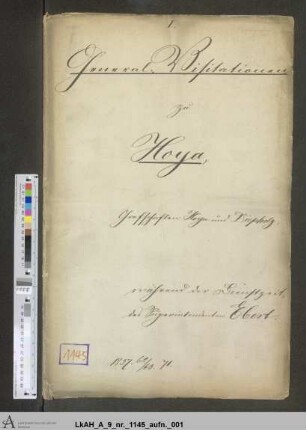 1.
General-Visitationen
zu
Hoya,
Grafschaften Hoya und Diepholz.
während der Dienstzeit
des Superintendenten Ebert.
1145
LkAH_A_9_nr._1145_aufn._001